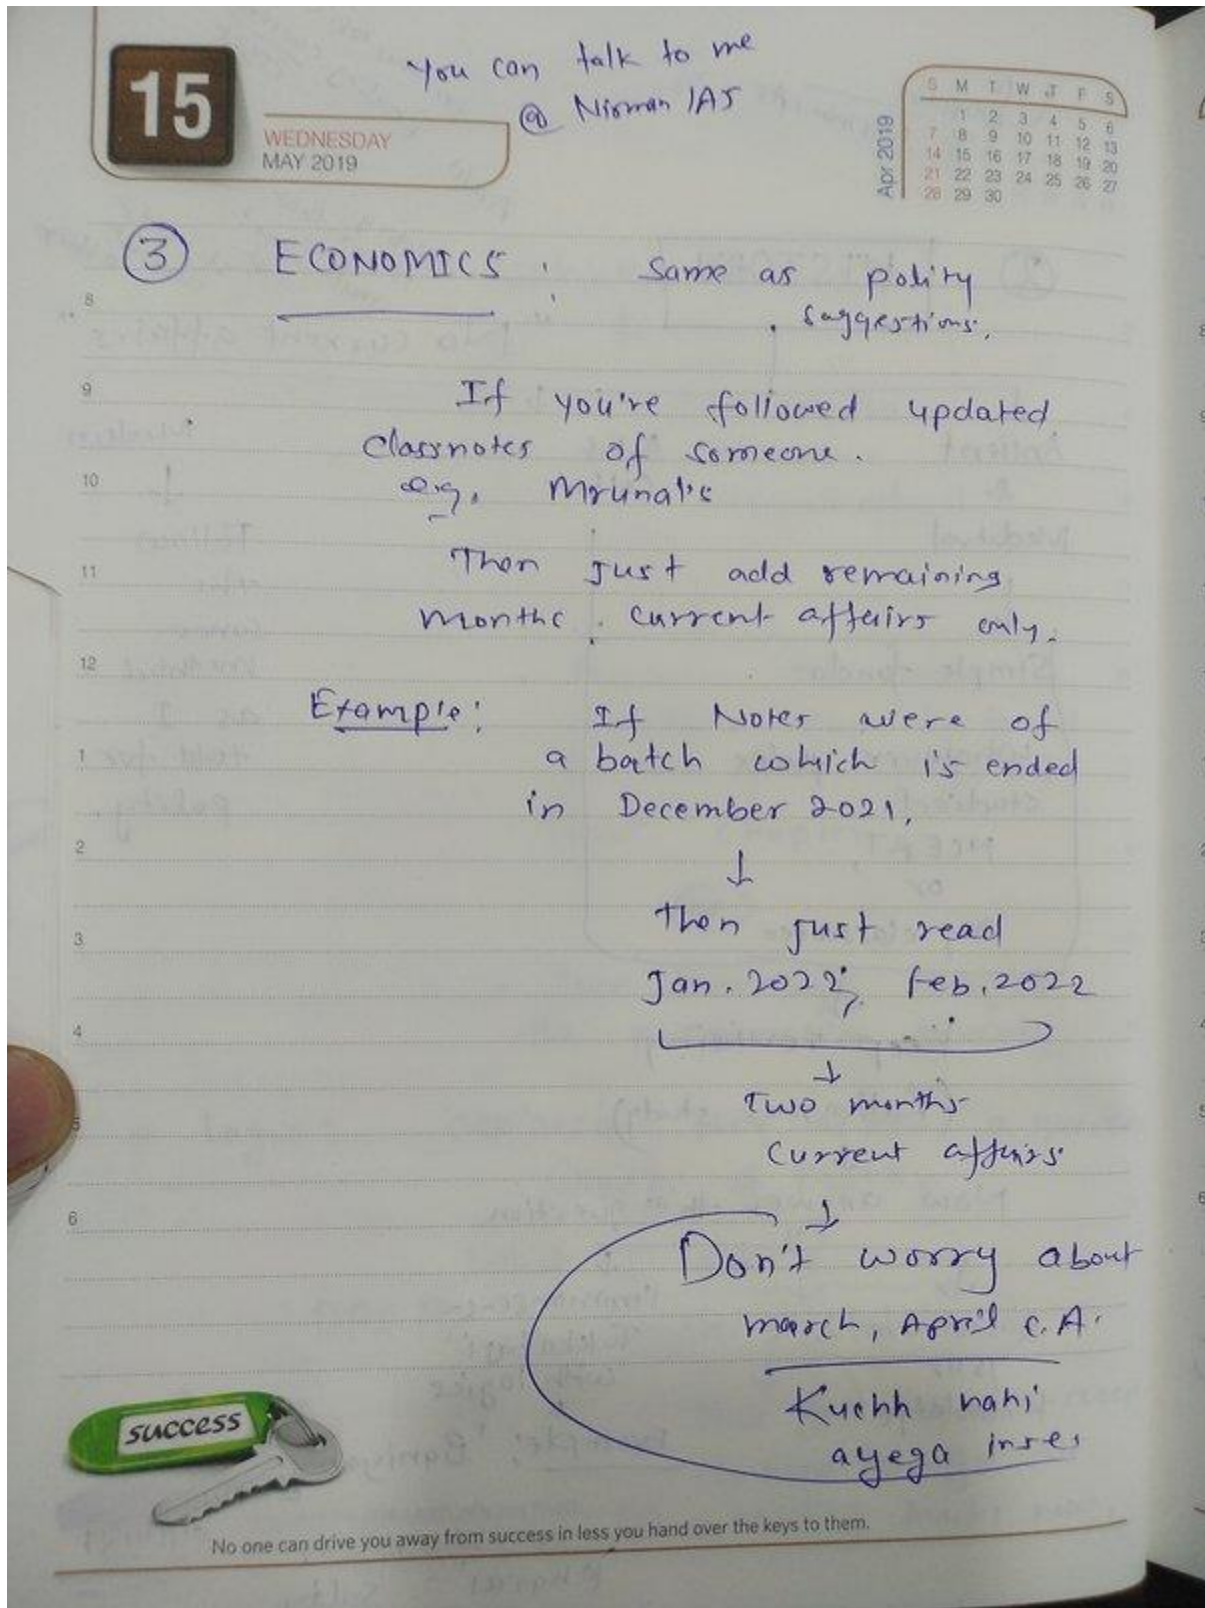 You can talk to me
@ Nirman IAS
15
WEDNESDAY
MAY 2019
Apr 2019
S M T W T F S
1 2 3 4 5 6
7 8 9 10 11 12 13
14 15 16 17 18 19 20
21 22 23 24 25 26 27
28 29 30
3 ECONOMICS : Same as polity
suggestions.
8
9
If you're followed updated
classnotes of someone.
10
e.g. Mrunal's
Then just add remaining
11
months current affairs only.
12
Example: If Notes were of
1
a batch which is ended
in December 2021,
2
↓
Then just read
3
Jan. 2022, Feb. 2022
4
↓
Two months
5
current affairs
↓
6
Don't worry about
march, April C.A.
Kuchh nahi
ayega inse
success
No one can drive you away from success in less you hand over the keys to them.